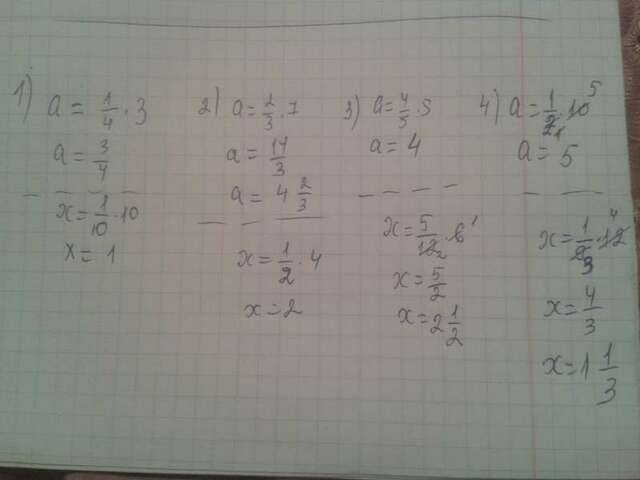 1) a = 1/4 · 3
a = 3/4
x = 1/10 · 10
x = 1
2) a = 2/3 · 7
a = 14/3
a = 4 2/3
x = 1/2 · 4
x = 2
3) a = 4/5 · 5
a = 4
x = 5/12 · 6 1
x = 5/2
x = 2 1/2
4) a = 1/2 · 10 5
a = 5
x = 4/3
x = 1 1/3